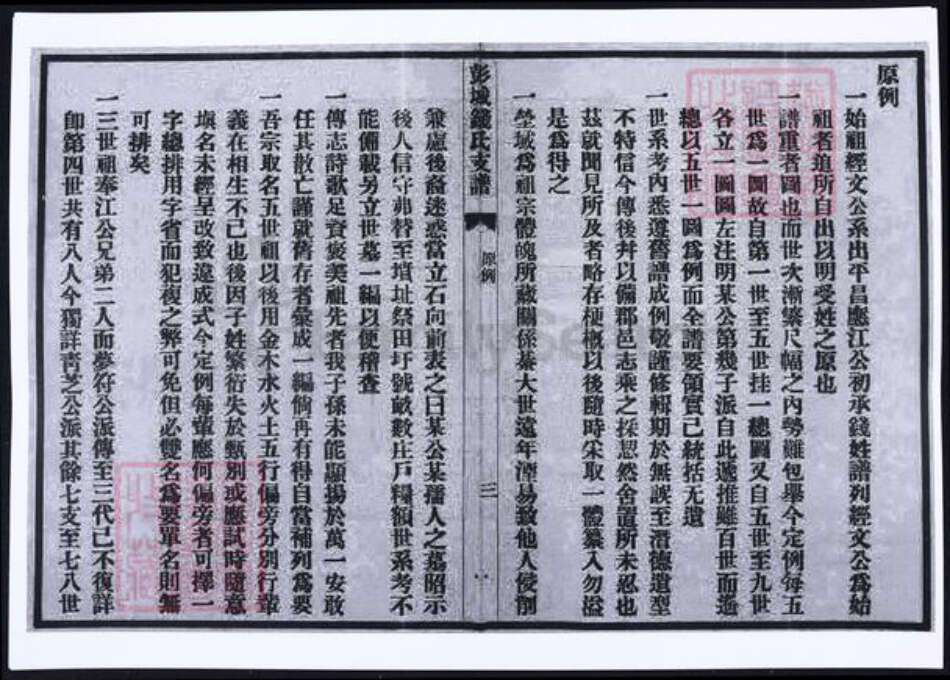 原例
一始祖經文公系出平昌應江公初承錢姓譜列經文公為始
祖者追所自出以明受姓之原也
一譜重者圖也而世次漸繁尺幅之內勢難包舉今定例每五
世為一圖故自第一世至五世挂一總圖又自五世至九世
各立一圖圖左注明某公第幾子派自此遞推雖百世而遙
總以五世一圖為例而全譜要領實已統括无遺
一世系考內悉遵舊譜成例敬謹修輯期於無誤至潛德遺型
不特信今傳後幷以備郡邑志乘之採恝然舍置所未忍也
茲就聞見所及者略存梗概以後隨時采取一體纂入勿溢
是為得之
一塋域為祖宗體魄所藏關係綦大世遠年湮易致他人侵削
彭城錢氏支譜
原例
三
兼慮後裔迷惑當立石向前表之曰某公某孺人之墓昭示
後人信守弗替至墳址祭田圩號畝數庄戶糧額世系考不
能備載另立世墓一編以便稽查
一傳志詩歌足資褒美祖先者我子孫未能顯揚於萬一安敢
任其散亡謹就舊存者彙成一編倘再有得自當補列為要
一吾宗取名五世祖以後用金木水火土五行偏旁分別行輩
義在相生不已也後因子姓繁衍失於甄別或應試時隨意
塡名未經呈改致違成式今定例每輩應何偏旁者可擇一
字總排用字省而犯複之弊可免但必雙名為要單名則無
可排矣
一三世祖奉江公兄弟二人而夢符公派傳至三代已不復詳
卽第四世共有八人今獨詳青芝公派其餘七支至七八世